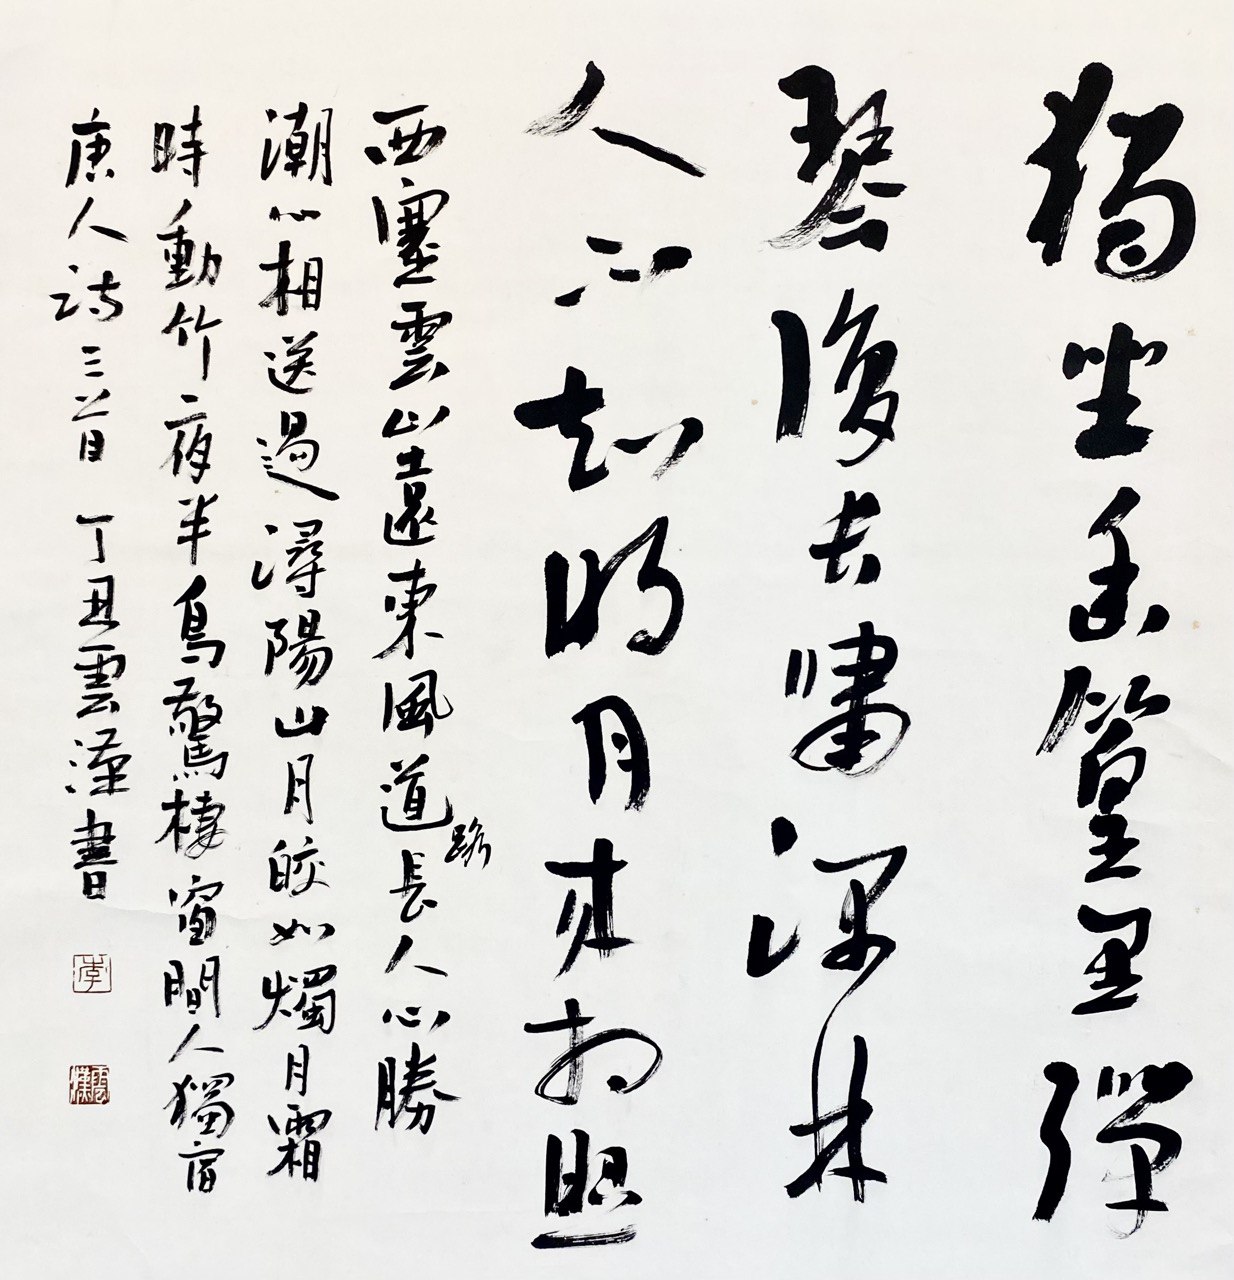 獨坐幽篁里彈
琴復長嘯深林
人不知明月來相照
西塞雲山遠東風道路長人心勝
潮心相送過潯陽山月皎如燭月霜
時動竹夜半鳥驚棲窗間人獨宿
唐人詩三首 丁丑雲漢書
李
雲漢